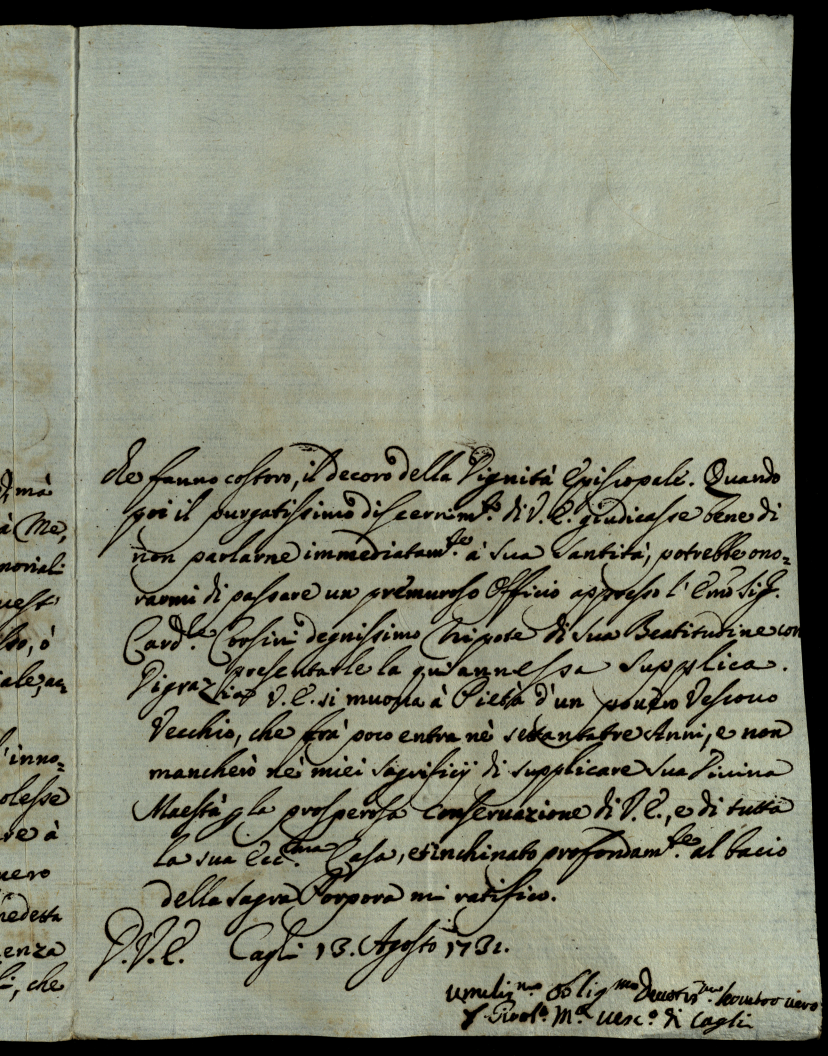 che fanno costoro, il decoro della Dignità Episcopale. Quando
poi il purgatissimo discernim.to di V. E. giudicasse bene di
non parlarne immediatam.te à Sua Santità, potrebbe ono=
rarmi di passare un premuroso Officio appresso l' Emo Sig.
Card.le Corsini degnissimo Nipote di Sua Beatitudine con
presentarle la qui annessa supplica.
Di grazia V. E. si muova à Pietà d'un povero Vescovo
Vecchio, che frà poco entra nè settantatre Anni, e non
mancherò nè miei sagrificij di supplicare Sua Divina
Maestà p la prosperosa conservazione di V. E., e di tutta
la sua Ecc.ma Casa, et inchinato profondam.te al bacio
della Sagra Porpora mi ratifico.
D. V. E. Cagli 13. Agosto 1731.
Umiliss.mo Oblig.mo Devotis.mo Servitor vero
F. Girol.o M.a Vesc.o di Cagli
mà
à Me,
moriali
quest'
sto, ò
iale, ac=
l'inno=
olesse
re à
nero
nedetta
enza
li, che